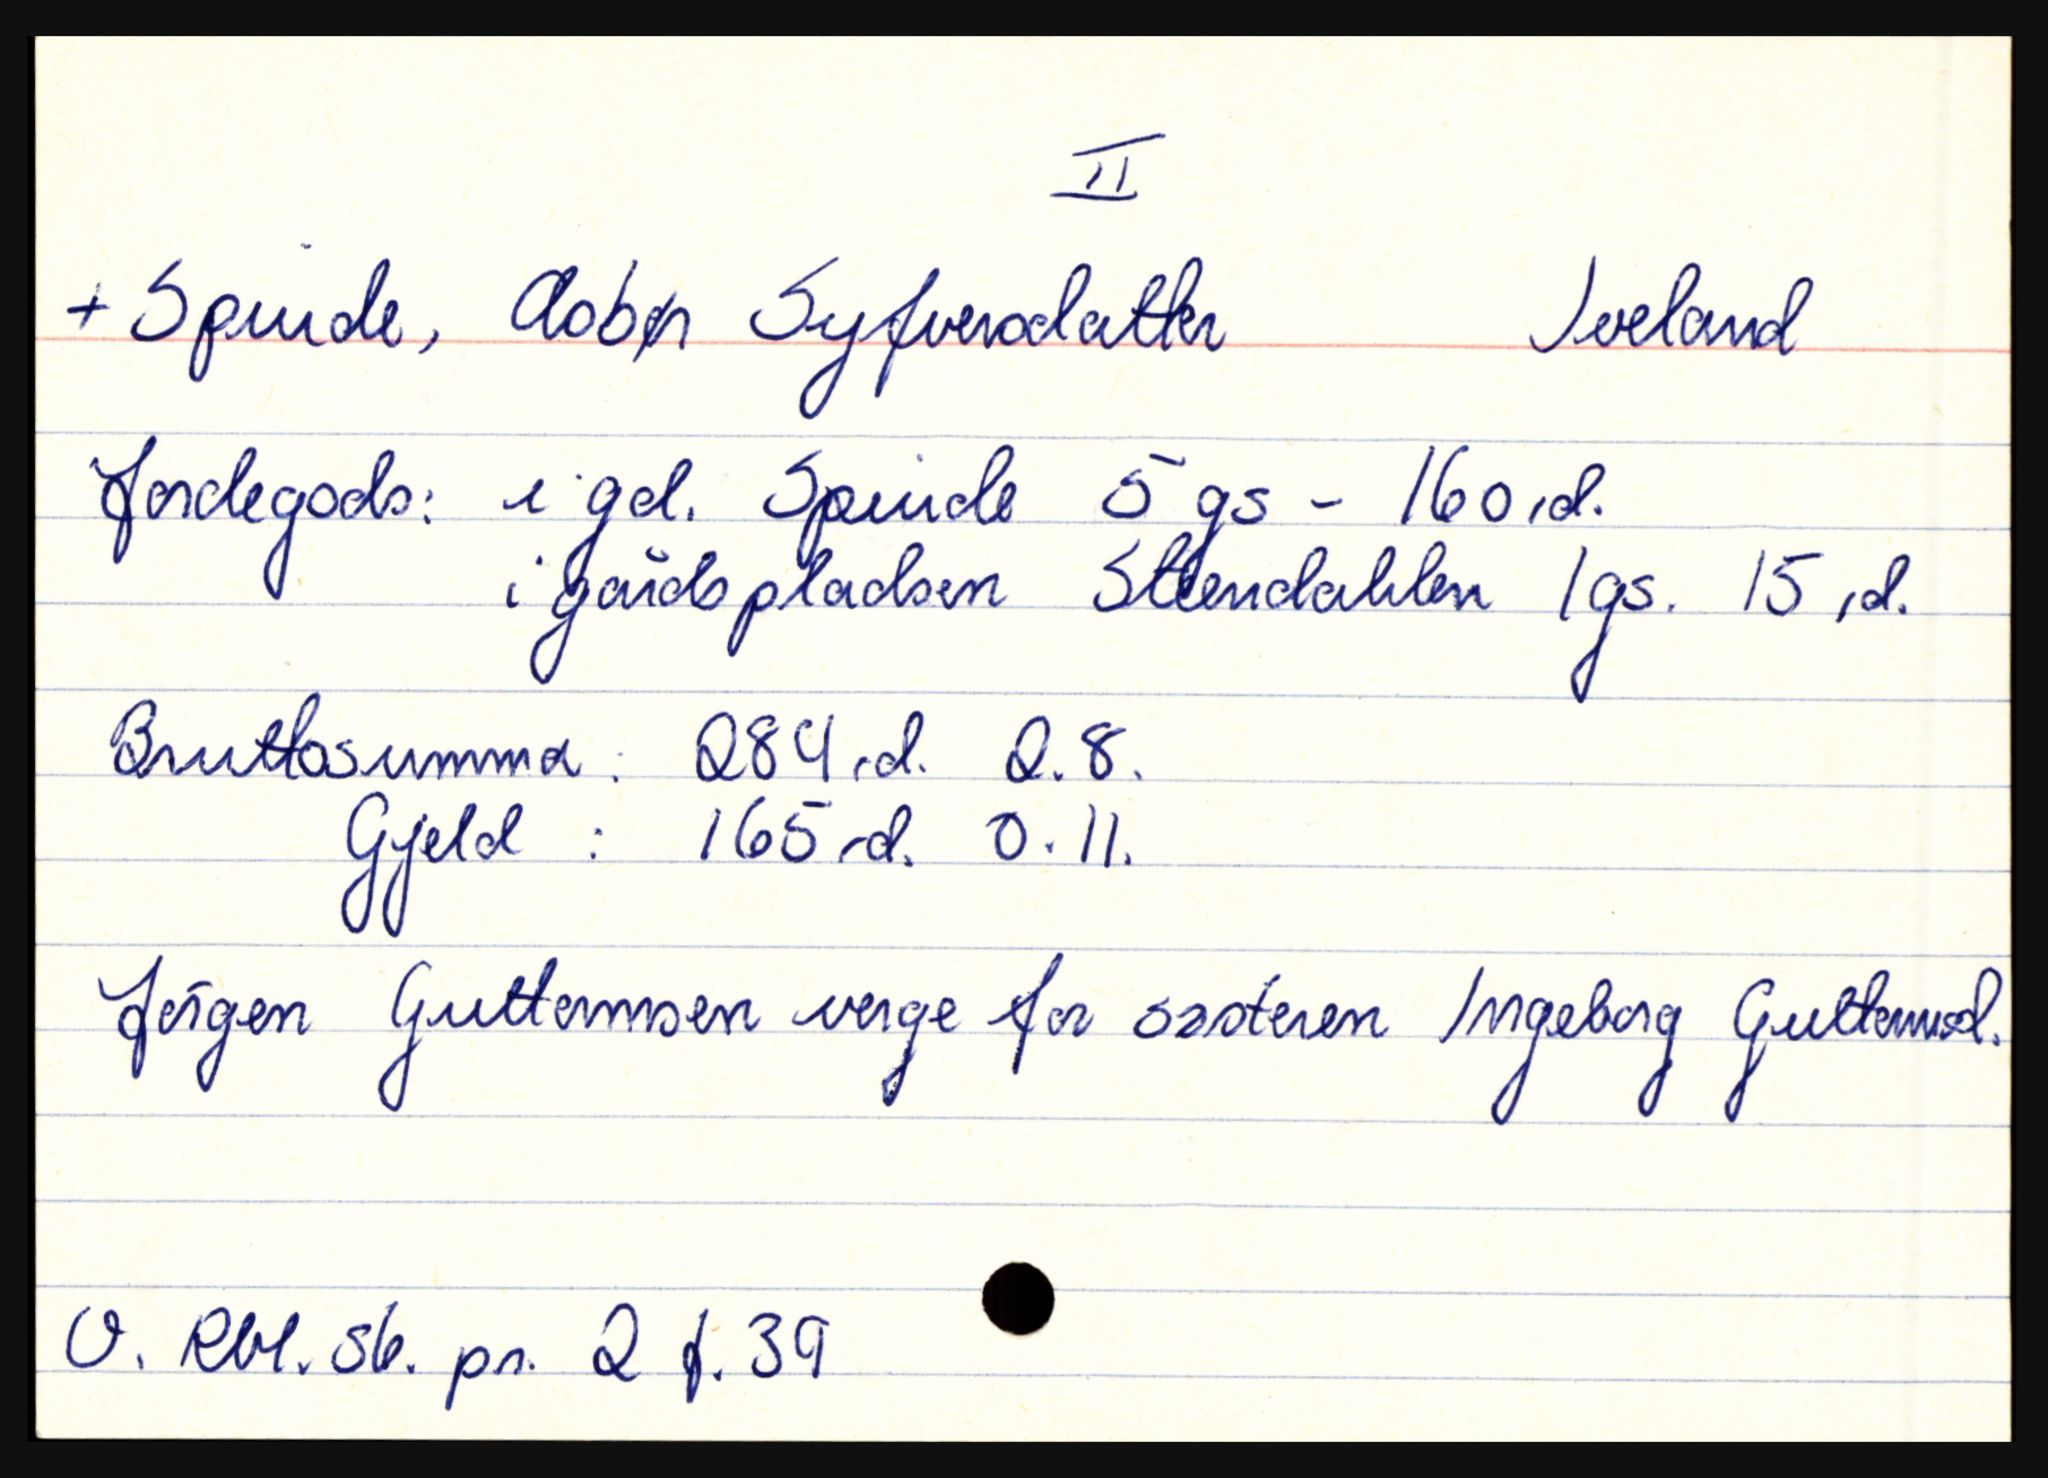 II
+ Spinde, Aobør Syfversdatter Iveland
Jordegods: i gd. Spinde 5 gs - 160 rd.
i gårdspladsen Steendahlen 1 gs. 15 rd.
Bruttosumma: 284 rd. 2.8.
Gjeld : 165 rd. 0.11.
Jørgen Guttormsen verge for søsteren Ingeborg Guttormsd.
O. Rbl. sk. pr. 2 f. 39